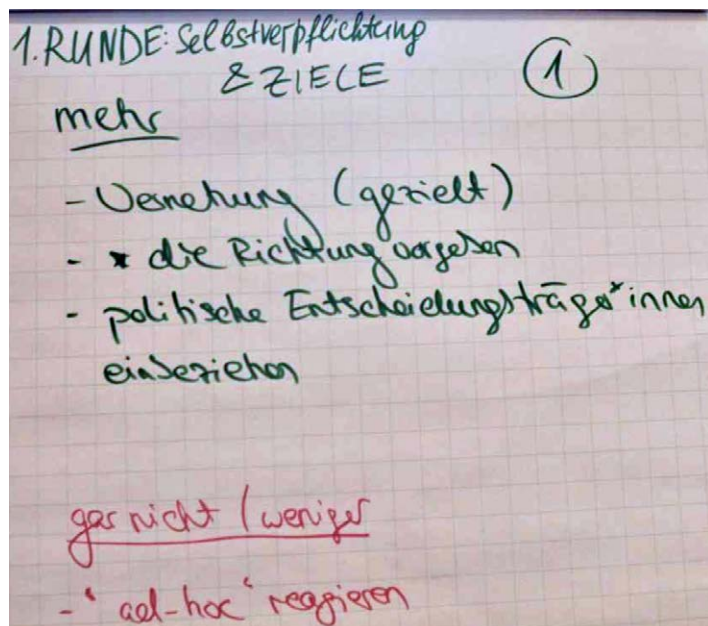 1. RUNDE: Selbstverpflichtung
& ZIELE
1
mehr
- Vernetzung (gezielt)
- * die Richtung vorgeben
- politische Entscheidungsträger*innen
einbeziehen
gar nicht / weniger
- 'ad-hoc' reagieren